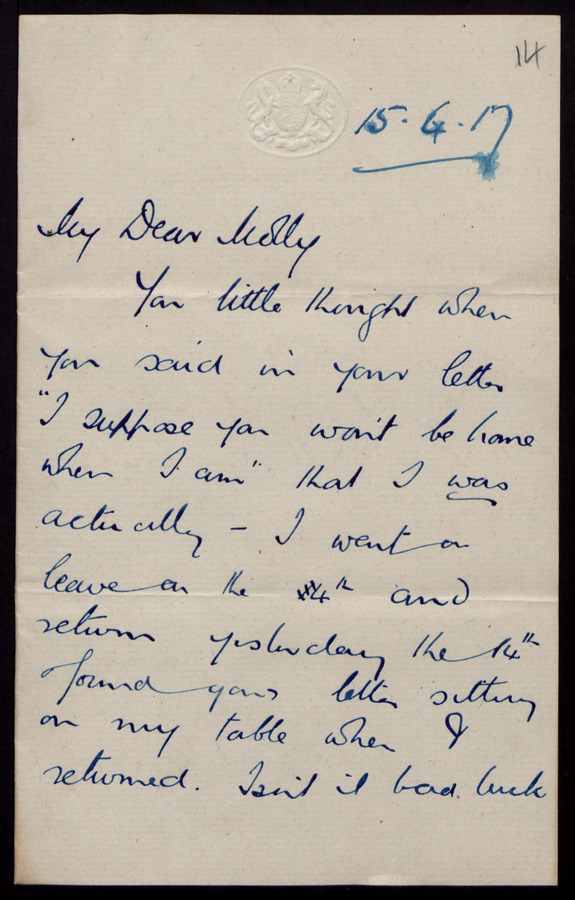 14
15.4.17
My Dear Molly
You little thought when
you said in your letter
"I suppose you won't be home
when I am" that I was
actually – I went on
leave on the 4th and
return yesterday the 14th
found yours letter sitting
on my table when I
returned. Isn't it bad luck